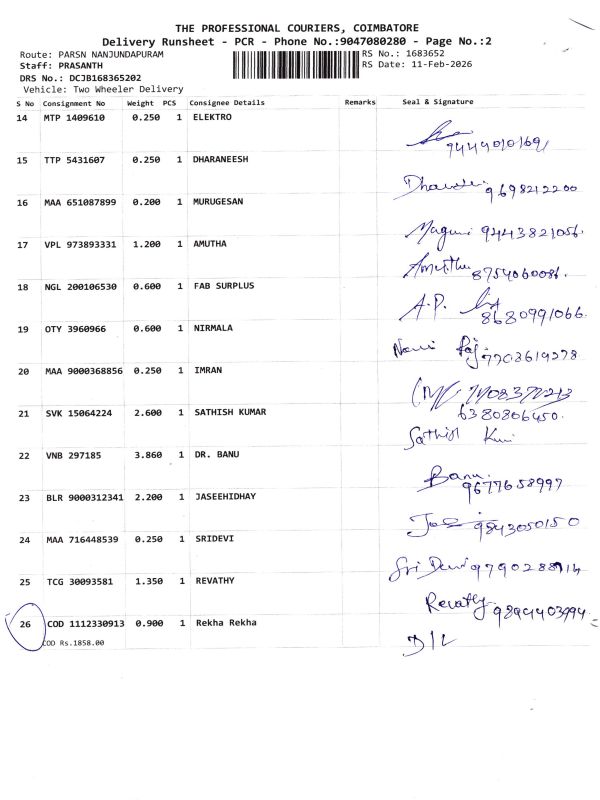 THE PROFESSIONAL COURIERS, COIMBATORE
Delivery Runsheet - PCR - Phone No.:9047080280 - Page No.:2
Route: PARSN NANJUNDAPURAM RS No.: 1683652
Staff: PRASANTH RS Date: 11-Feb-2026
DRS No.: DCJB168365202
Vehicle: Two Wheeler Delivery
S No Consignment No Weight PCS Consignee Details Remarks Seal & Signature
14 MTP 1409610 0.250 1 ELEKTRO
9444010169
15 TTP 5431607 0.250 1 DHARANEESH
9698212200
16 MAA 651087899 0.200 1 MURUGESAN
9443821056.
17 VPL 973893331 1.200 1 AMUTHA
8754060086.
18 NGL 200106530 0.600 1 FAB SURPLUS
A.P. 8680991066.
19 OTY 3960966 0.600 1 NIRMALA
7703619278
20 MAA 9000368856 0.250 1 IMRAN
21 SVK 15064224 2.600 1 SATHISH KUMAR
6380806450.
Sathish
22 VNB 297185 3.860 1 DR. BANU
Banu. 9677658997
23 BLR 9000312341 2.200 1 JASEEHIDHAY
9843050150
24 MAA 716448539 0.250 1 SRIDEVI
Sri Devi
25 TCG 30093581 1.350 1 REVATHY
Revathy
26 COD 1112330913 0.900 1 Rekha Rekha
COD Rs.1858.00
D/L